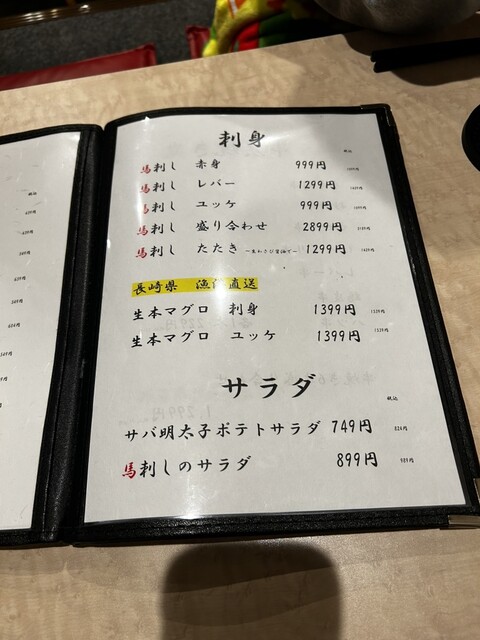 刺身
税込
馬刺し 赤身 999円
馬刺し レバー 1299円
馬刺し ユッケ 999円
馬刺し 盛り合わせ 2899円
馬刺し たたき ～生わさび醤油で～ 1299円
長崎県 漁港直送
生本マグロ 刺身 1399円
生本マグロ ユッケ 1399円
サラダ
税込
サバ明太子ポテトサラダ 749円 824円
馬刺しのサラダ 899円 989円